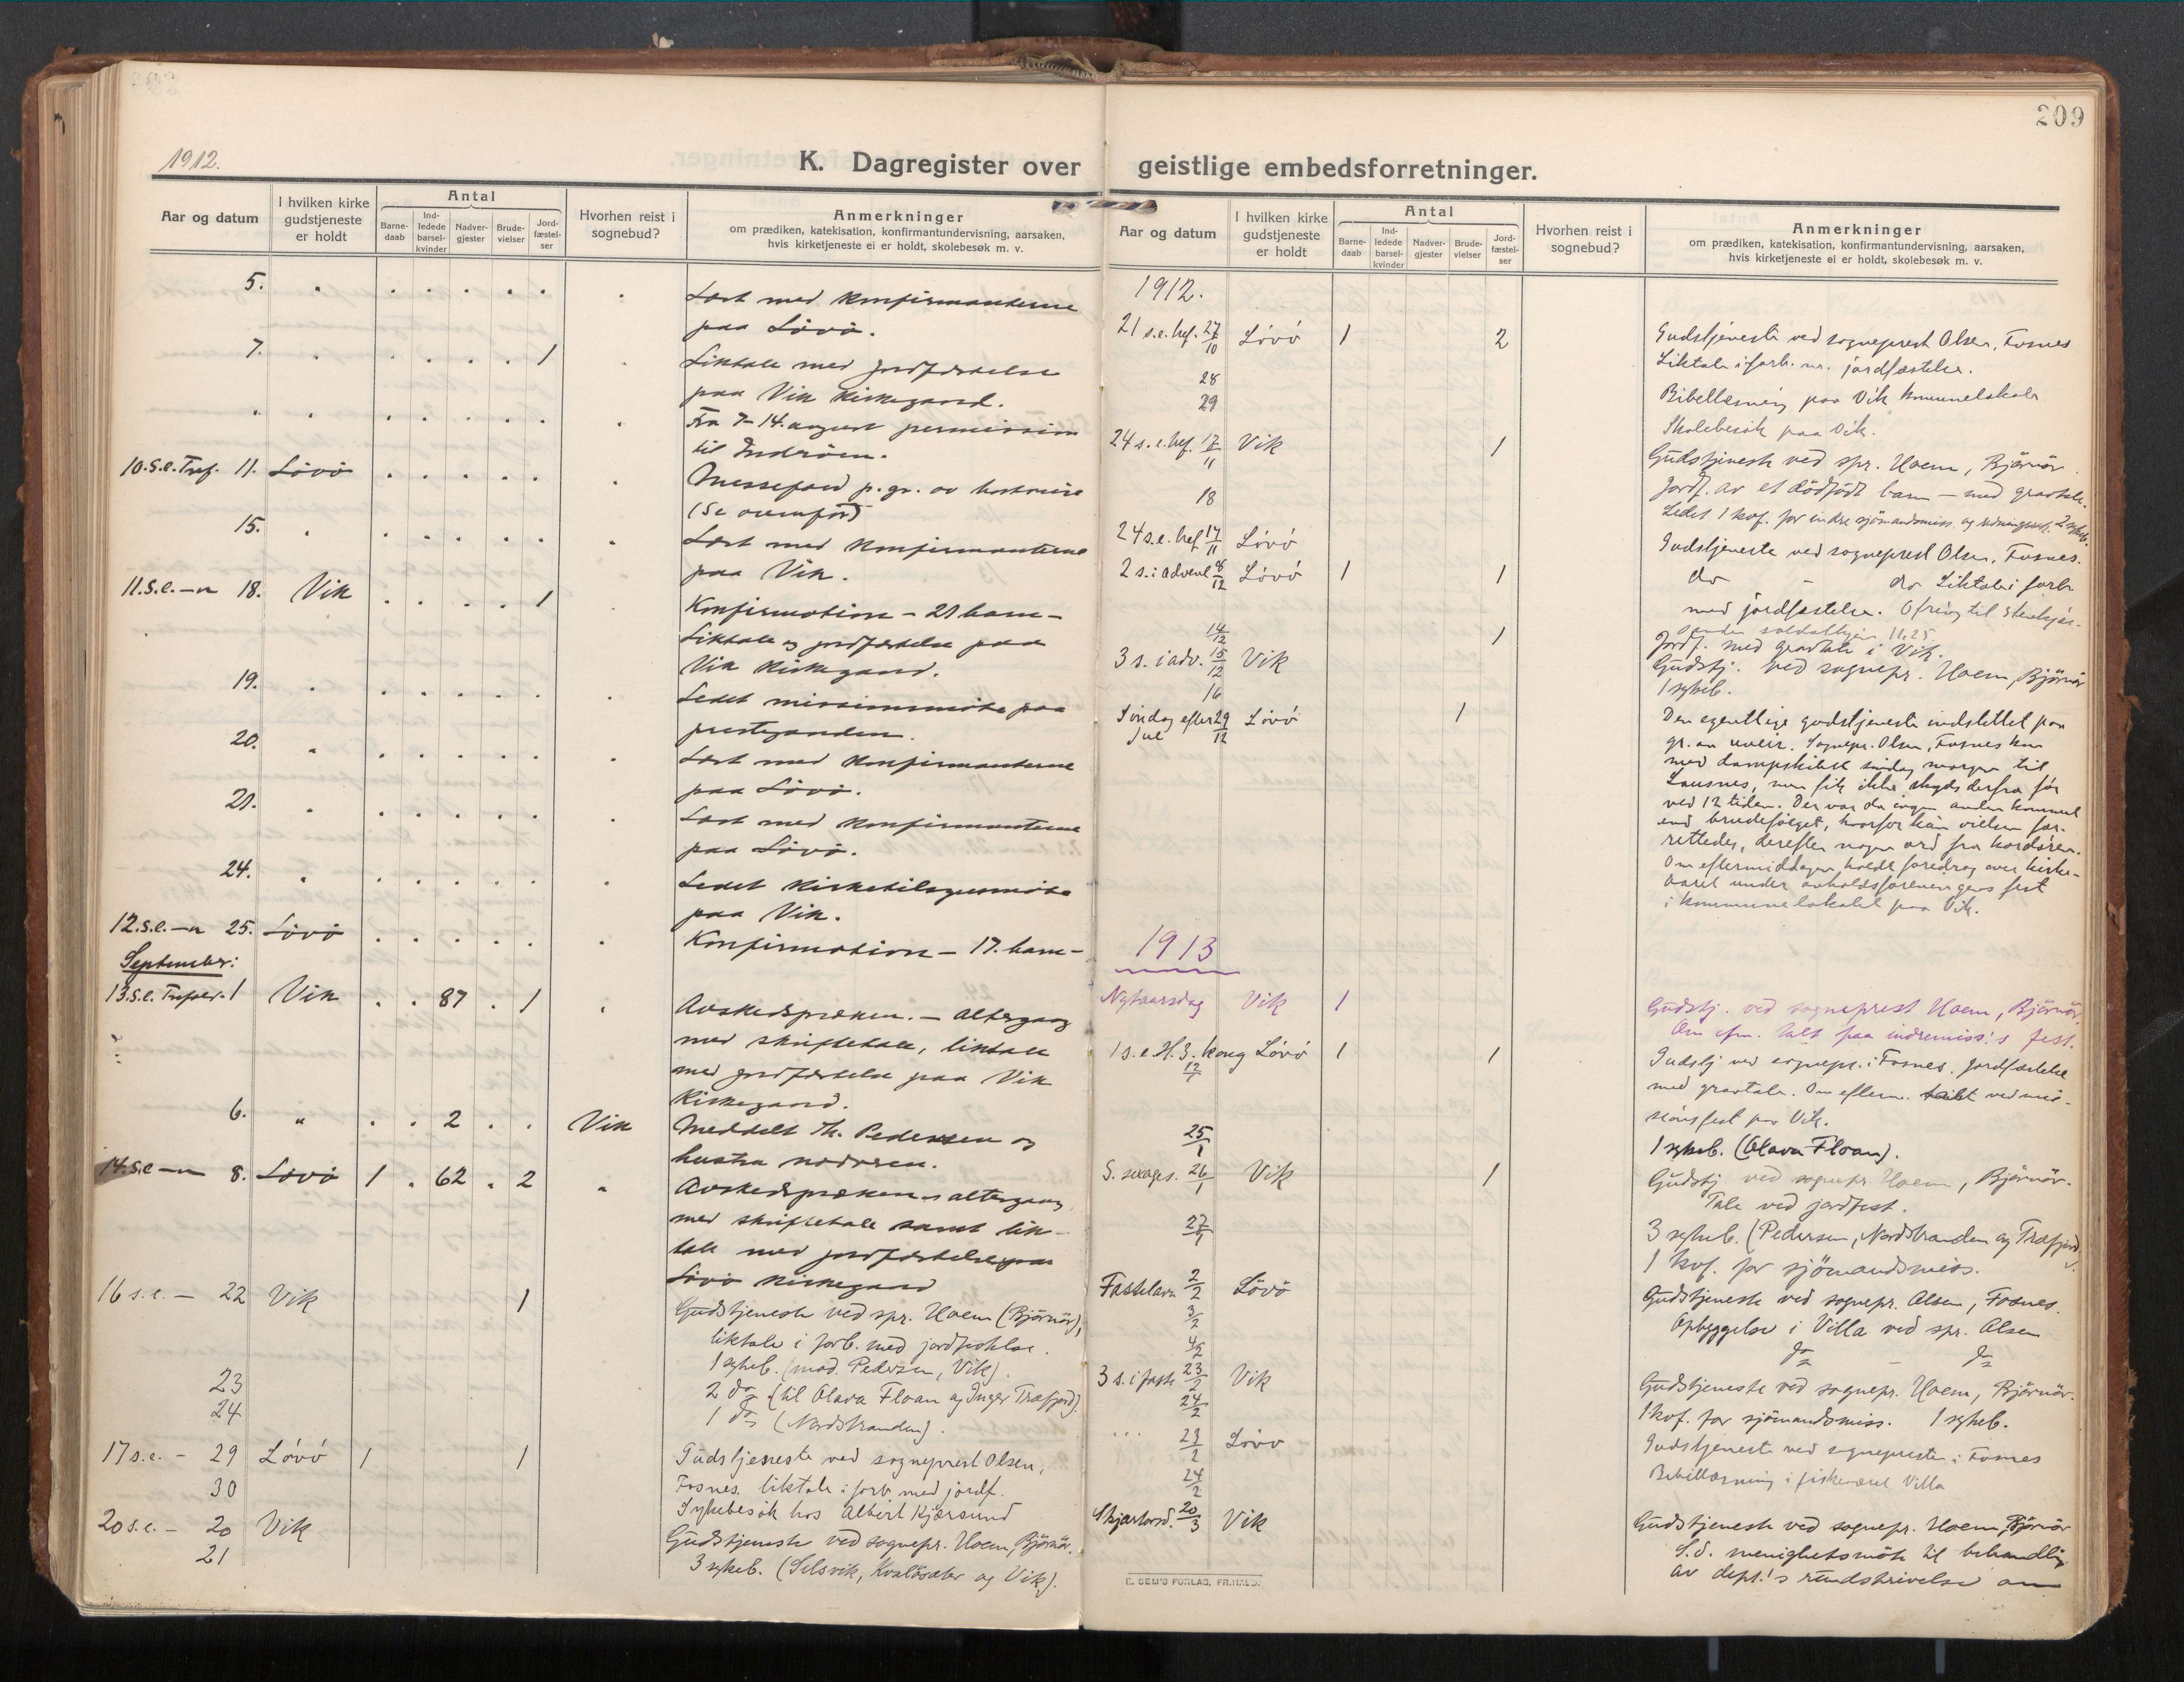 209
1912.
K. Dagregister over geistlige embedsforretninger.
Aar og datum
I hvilken kirke gudstjeneste er holdt
Antal
Barne-daab
Ind-ledede barsel-kvinder
Nadver-gjester
Brude-vielser
Jord-fæstel-ser
Hvorhen reist i sognebud?
Anmerkninger
om prædiken, katekisation, konfirmantundervisning, aarsaken,
hvis kirketjeneste ei er holdt, skolebesøk m. v.
5. Læst med konfirmanterne
paa Lövö.
7. 1 Liktale med jordfæstelse
paa Vik kirkegaard.
Fra 7-14. august permission
til Inderöen.
10.s.e.Tref. 11. Lövö Messefald p. gr. av bortreise
(Se ovenfor)
15. Læst med konfirmanterne
paa Vik.
11.s.e.-n 18. Vik 1 Konfirmation - 21 barn -
Liktale og jordfæstelse paa
Vik kirkegaard.
19. Ledet missionsmöte paa
prestegaarden.
20. Læst med konfirmanterne
paa Lövö.
21. Læst med konfirmanterne
paa Lövö.
24. Ledet kirketilsynsmöte
paa Vik.
12.s.e.-n 25. Lövö Konfirmation - 17. barn -
September:
13.s.e. Trefold. 1 Vik 87 1 Avskedspræken. - Altergang
med skriftetale, liktale
med jordfæstelse paa Vik
kirkegaard.
6. " 2 Vik Meddelt Th. Pedersen og
hustru nadveren.
14.s.e-n 8. Lövö 1 62 2 Avskedspræken - altergang
med skriftetale samt lik-
tale med jordfæstelse paa
Lövö kirkegaard
16 s.e. - 22 Vik 1 Gudstjeneste ved spr. Hoem (Björnör),
liktale i forb. med jordfæstelse.
1 sykeb. (mad. Pedersen, Vik).
23 2 do (til Olava Floan og Inger Træfjord).
24 1 do (Nordstranden).
17 s.e. - 29 Lövö 1 1 Gudstjeneste ved sogneprest Olsen,
Fosnes. liktale i forb. med jordf.
30 Sykebesök hos Albert Kjærsund
20 s.e. - 20 Vik Gudstjeneste ved sognepr. Hoem, Björnör.
21 3 sykeb. (Selsvik, Kvalösæter og Vik).
Aar og datum
I hvilken kirke gudstjeneste er holdt
Antal
Barne-daab
Ind-ledede barsel-kvinder
Nadver-gjester
Brude-vielser
Jord-fæstel-ser
Hvorhen reist i sognebud?
Anmerkninger
om prædiken, katekisation, konfirmantundervisning, aarsaken,
hvis kirketjeneste ei er holdt, skolebesøk m. v.
1912.
21 s.e. tref. 27/10 Lövö 1 2 Gudstjeneste ved sogneprest Olsen, Fosnes
Liktale i forb. m. jordfæstelse.
28 Bibellæsning paa Vik kommunelokale
29 Skolebesök paa Vik.
24 s.e. tref. 17/11 Vik 1 Gudstjeneste ved spr. Hoem, Björnör.
Jordf. av et dödfödt barn - med gravtale.
18 Ledet 1 kvf. for indre sjömandsmiss. og redningssels. 2 sykeb.
24 s.e. tref 17/11 Lövö Gudstjeneste ved sogneprest Olsen, Fosnes.
2 s. i advent 8/12 Lövö 1 1 do - do Liktale i forb.
med jordfæstelse. Ofring til Stenkjær-
sanden soldathjem 11,25
14/12 1 Jordf. med gravtale i Vik.
3 s. i adv. 15/12 Vik Gudstj. ved sognepr. Hoem, Björnör
16 1 sykeb.
Söndag efter jul 29/12 Lövö 1 Den egentlige gudstjeneste indstillet paa
gr. av uveir. Sognepr. Olsen, Fosnes kom
med dampskibet söndag morgen til
Lausnes, men fik ikke skyds derfra för
ved 12 tiden. Der var da ingen anden kommet
end brudefölget, hvorfor kun vielsen for-
rettedes, derefter nogen ord fra kordören.
Om eftermiddagen holdt foredrag over kirke-
aaret under avholdsforeningens fest
i kommunelokalet paa Vik.
1913
Nytaarsdag Vik 1 Gudstj. ved sogneprest Hoem, Björnör.
Om efm. talt paa indremiss.'s fest.
1 s.e. H.3.kong 12/1 Lövö 1 1 Gudstj ved sognepr. i Fosnes. Jordfæstelse
med gravtale. Om efterm. talt ved mis-
sionsfest paa Vik.
25/1 1 sykeb. (Olava Floan).
S. sexages. 26/1 Vik 1 Gudstj ved sognepr Hoem, Björnör.
Tale ved jordfest.
27/1 3 sykeb. (Pedersen, Nordstranden og Træfjord).
1 kvf. for sjömandsmiss.
Fastelavn 2/2 Lövö Gudstjeneste ved sognepr. Olsen, Fosnes.
3/2 Opbyggelse i Villa ved spr. Olsen
4/2 do - do
3 s. i faste 23/2 Vik Gudstjeneste ved sognepr. Hoem, Björnör.
24/2 1 kvf. for sjömandsmiss. 1 sykeb.
" 23/2 Lövö Gudstjeneste ved sognepresten i Fosnes
24/2 Bibellæsning i fiskeværet Villa
Skjærtorsd. 20/3 Vik Gudstjeneste ved sognepr. Hoem, Björnör
S.d. menighetsmöte til behandling
av dept.'s rundskrivelse om
E. SEM'S FORLAG, FR.HALD.